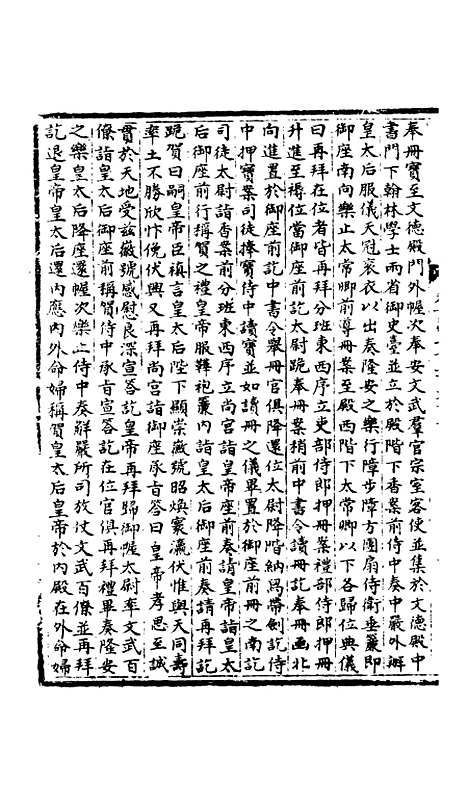 奉冊寶至文德殿門外幄次奉安文武羣官宗室客使並集於文德殿中
書門下翰林學士兩省御史臺並立於殿階下香案前侍中奏中嚴外辦
皇太后服儀天冠衮衣以出奏隆安之樂行障步障方團扇侍衛垂簾即
御座南向樂止太常卿前導冊案至殿西階下太常卿以下各歸位典儀
曰再拜在位者皆再拜分班東西序立吏部侍郎押冊案禮部侍郎押冊
升進至褥位當御座前訖太尉跪奉冊案稍前中書令讀冊訖奉冊函北
向進置於御座前訖中書令舉冊官俱降還位太尉降階納舄帶劍訖侍
中押寶案司徒捧寶侍中讀寶並如讀冊之儀畢置於御座前冊之南訖
司徒太尉詣香案前分班東西序立尚宮詣皇帝座前奏請皇帝詣皇太
后御座前行稱賀之禮皇帝服鞾袍簾内詣皇太后御座前奏請再拜訖
跪賀曰嗣皇帝臣禎言皇太后陛下顯崇徽號昭煥寰瀛伏惟與天同壽
率土不勝欣忭俛伏興又再拜尚宮詣御座承旨答曰皇帝孝思至誠
貫於天地受兹徽號感慰良深宣答訖皇帝再拜歸御幄太尉率文武百
僚詣皇太后御座前稱賀侍中承旨宣答訖在位官俱再拜禮畢奏隆安
之樂皇太后降座還幄次樂止侍中奏解嚴所司放仗文武百僚並再拜
訖退皇帝皇太后還内應内外命婦稱賀皇太后皇帝於内殿在外命婦